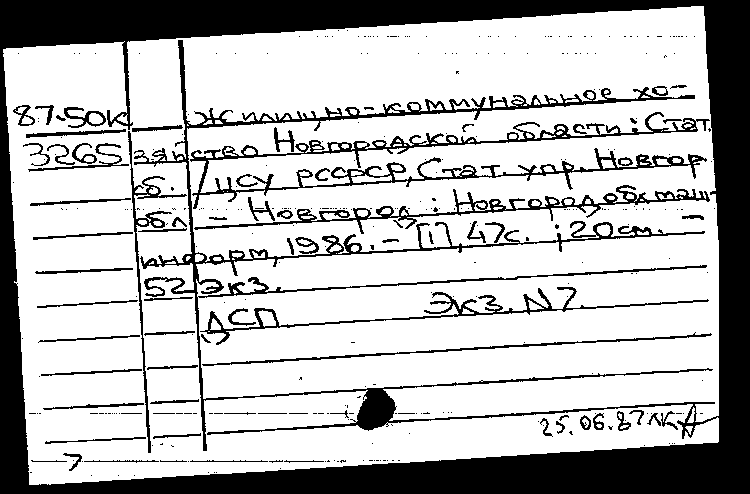 87-50к Жилищно-коммунальное хо-
3265 зяйство Новгородской области: Стат.
сб. / ЦСУ РСФСР, Стат. упр. Новгор.
обл. - Новгород: Новгородоблмаш-
информ, 1986. - [1], 47с. ; 20см. -
52 экз.
ДСП Экз. N7
25.06.87
7